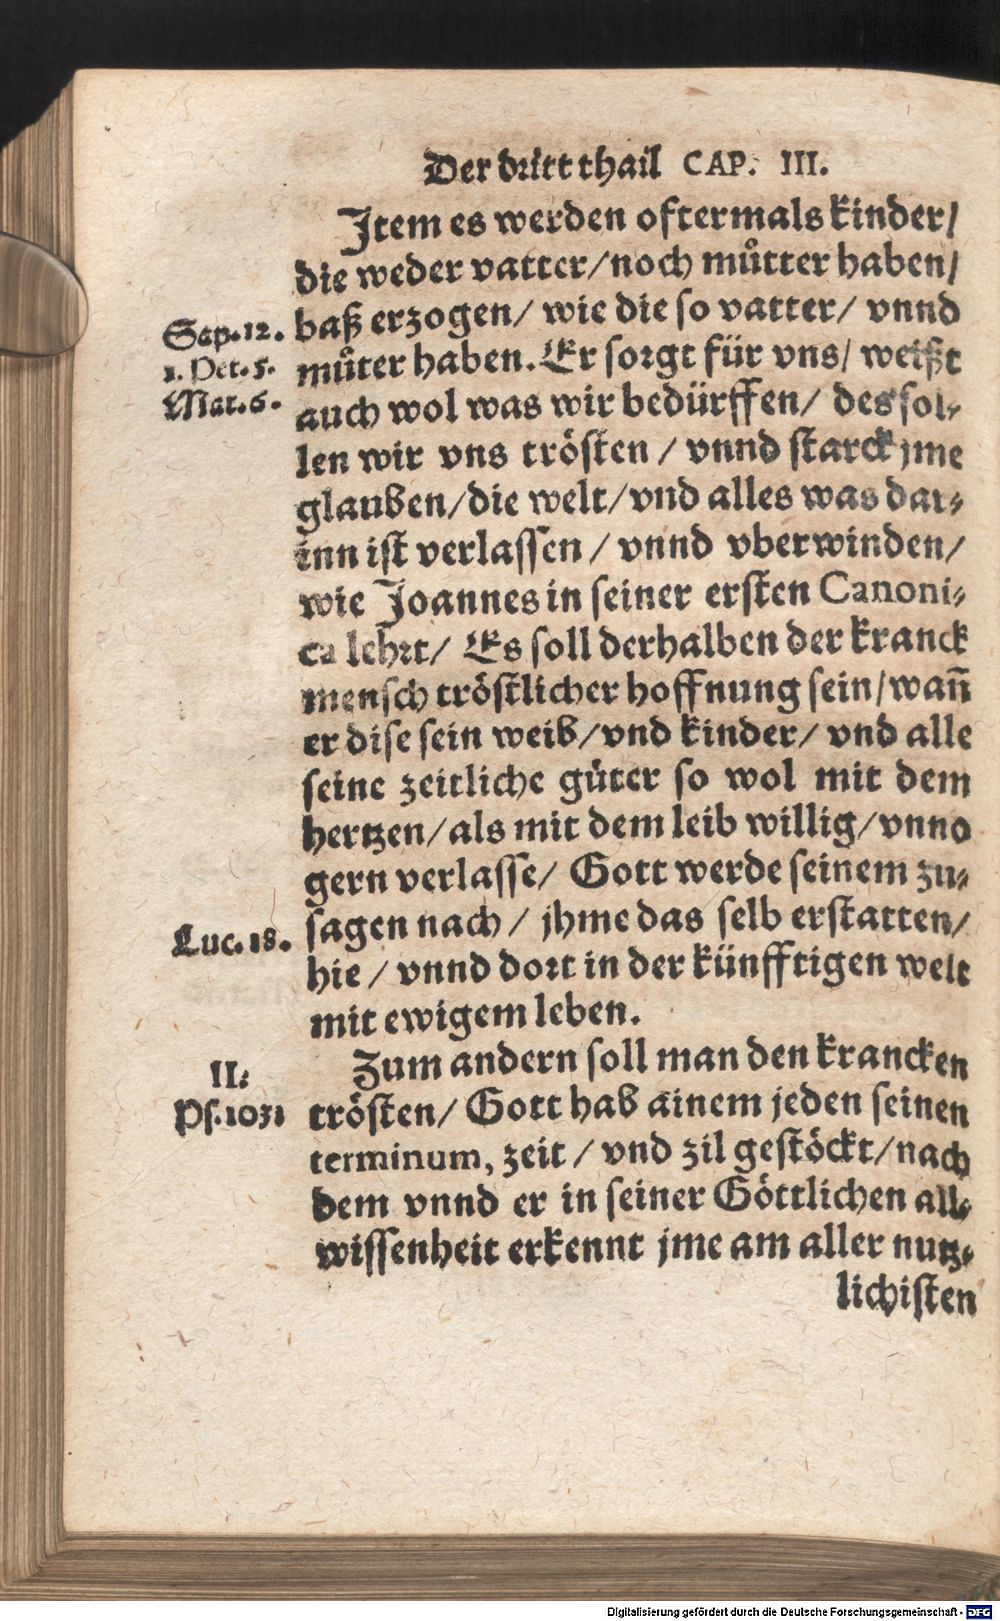 Der dritt thail CAP. III.
Item es werden oftermals kinder/
die weder vatter/noch můtter haben/
baß erzogen/ wie die so vatter/ vnnd
můter haben. Er sorgt für vns/ weißt
auch wol was wir bedürffen/ des sol-
len wir vns trösten / vnnd starck jme
glauben/die welt/vnd alles was dar-
inn ist verlassen / vnnd vberwinden/
wie Joannes in seiner ersten Canoni-
ca lehrt/ Es soll derhalben der kranck
mensch tröstlicher hoffnung sein/wañ
er dise sein weib/vnd kinder/ vnd alle
seine zeitliche güter so wol mit dem
hertzen/als mit dem leib willig/vnnd
gern verlasse/ Gott werde seinem zu-
sagen nach/ jhme das selb erstatten/
hie / vnnd dort in der künfftigen welt
mit ewigem leben.
Zum andern soll man den krancken
trösten/ Gott hab ainem jeden seinen
terminum, zeit / vnd zil gestöckt/nach
dem vnnd er in seiner Göttlichen all-
wissenheit erkennt jme am aller nutz-
lichisten
Sap.12.
1. Pet.5.
Mat.6.
Luc.18.
II.
Ps.103.
Digitalisierung gefördert durch die Deutsche Forschungsgemeinschaft - DFG